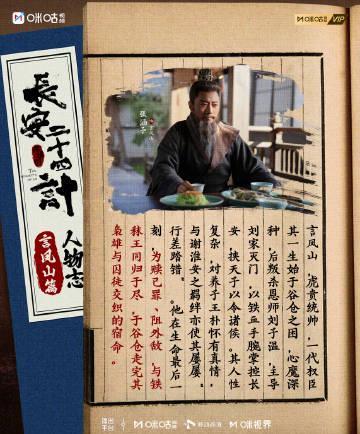 咪咕视频
咪咕视频 VIP
長安二十四計
人物志
言凤山篇
张涵予
言凤山,虎贲统帅,一代权臣
其一生始于谷仓之困,心魔深
种,后叛杀恩师刘子温,主导
刘家灭门,以铁血手腕掌控长
安,挟天子以令诸侯。其人性
复杂,对养子王朴怀有真情,
与谢淮安之羁绊亦使其屡屡
行差踏错。他在生命最后一
刻,为赎己罪、阻外敌,与铁
秣王同归于尽,于谷仓走完其
枭雄与囚徒交织的宿命。
咪咕视频 移动高清 咪咕视界